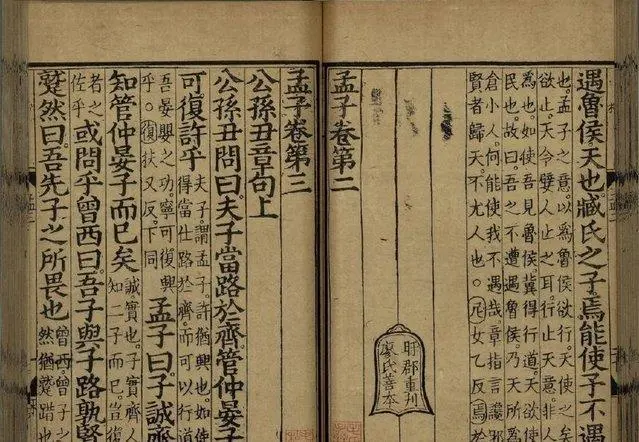 遇魯侯天也臧氏之子焉能使予不遇
也。孟子之意以為魯侯欲行天使之矣
欲止天令嬖人止之耳行止天意非人
為也如使吾見魯侯冀得行道天欲使
民也故曰吾之不遭遇魯侯乃天所為
倉小人何能使我不遇哉章指言讒
賢者歸天不尤人也。尼女乙反焉於
孟子卷第二
盱郡重刊
廖氏善本
孟子卷第三
公孫丑章句上
公孫丑問曰夫子當路於齊管仲晏子
可復許乎夫子謂孟子許猶興也如得當仕路於齊而可以行道
吾晏嬰之功寧可復興乎。復扶又反下同孟子曰子誠齊
知管仲晏子而已矣誠實也子實齊知二子而已豈復
者之佐乎或問乎曾西曰吾子與子路孰賢
蹵然曰吾先子之所畏也曾西曾子之然猶蹵踖